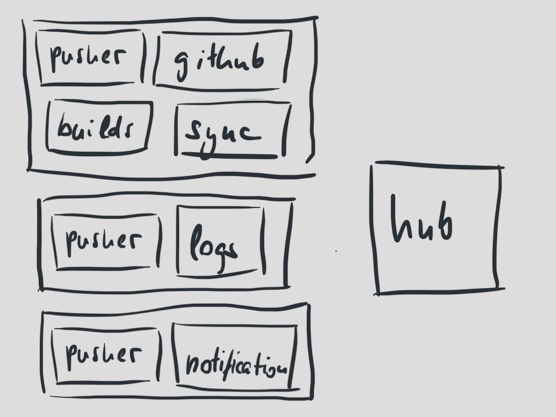 pusher github
builds sync
pusher logs
hub
pusher notification